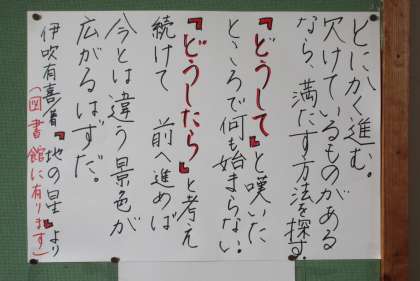 とにかく進む。
欠けているものがある
なら、満たす方法を探す。
『どうして』と嘆いた
ところで何も始まらない。
『どうしたら』と考え
続けて　前へ進めば
今とは違う景色が
広がるはずだ。
伊吹有喜著『地の星』より
（図書館に有ります）